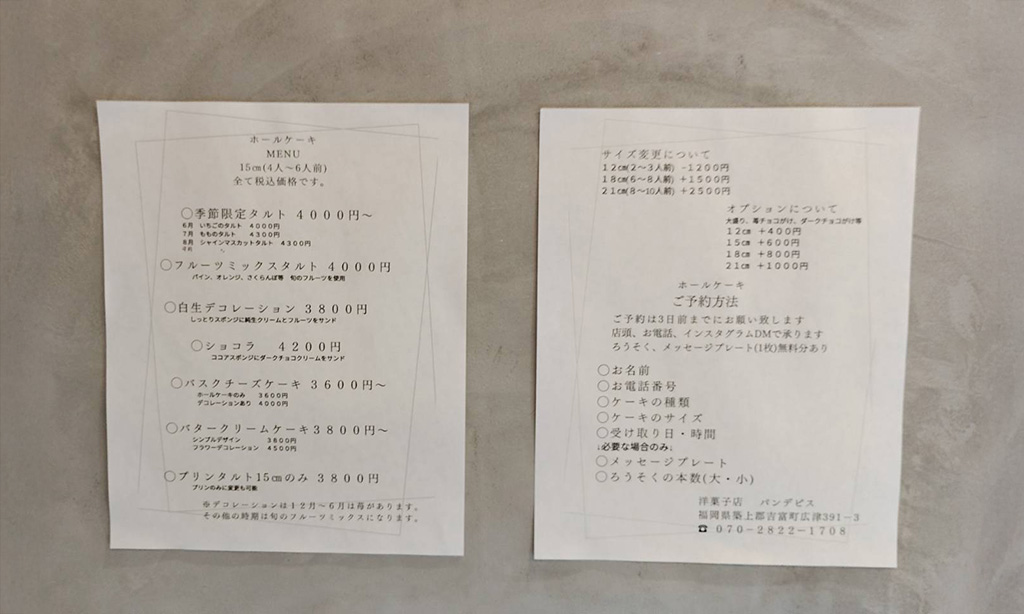 ホールケーキ
MENU
15㎝(4人～6人前)
全て税込価格です。
○季節限定タルト 4000円～
6月 いちごのタルト 4000円
7月 もものタルト 4300円
8月 シャインマスカットタルト 4300円
○フルーツミックスタルト 4000円
パイン、オレンジ、さくらんぼ等 旬のフルーツを使用
○白生デコレーション 3800円
しっとりスポンジに純生クリームとフルーツをサンド
○ショコラ 4200円
ココアスポンジにダークチョコクリームをサンド
○バスクチーズケーキ 3600円～
ホールケーキのみ 3600円
デコレーションあり 4000円
○バタークリームケーキ3800円～
シンプルデザイン 3800円
フラワーデコレーション 4500円
○プリンタルト15㎝のみ 3800円
プリンのみに変更も可能
※デコレーションは12月～6月は苺があります。
その他の時期は旬のフルーツミックスになります。
サイズ変更について
12㎝(2～3人前) -1200円
18㎝(6～8人前) +1500円
21㎝(8～10人前) +2500円
オプションについて
大盛り、苺チョコがけ、ダークチョコがけ等
12㎝ +400円
15㎝ +600円
18㎝ +800円
21㎝ +1000円
ホールケーキ
ご予約方法
ご予約は3日前までにお願い致します
店頭、お電話、インスタグラムDMで承ります
ろうそく、メッセージプレート(1枚)無料分あり
○お名前
○お電話番号
○ケーキの種類
○ケーキのサイズ
○受け取り日・時間
↓必要な場合のみ↓
○メッセージプレート
○ろうそくの本数(大・小)
洋菓子店 パンデピス
福岡県築上郡吉富町広津391-3
☎ 070-2822-1708